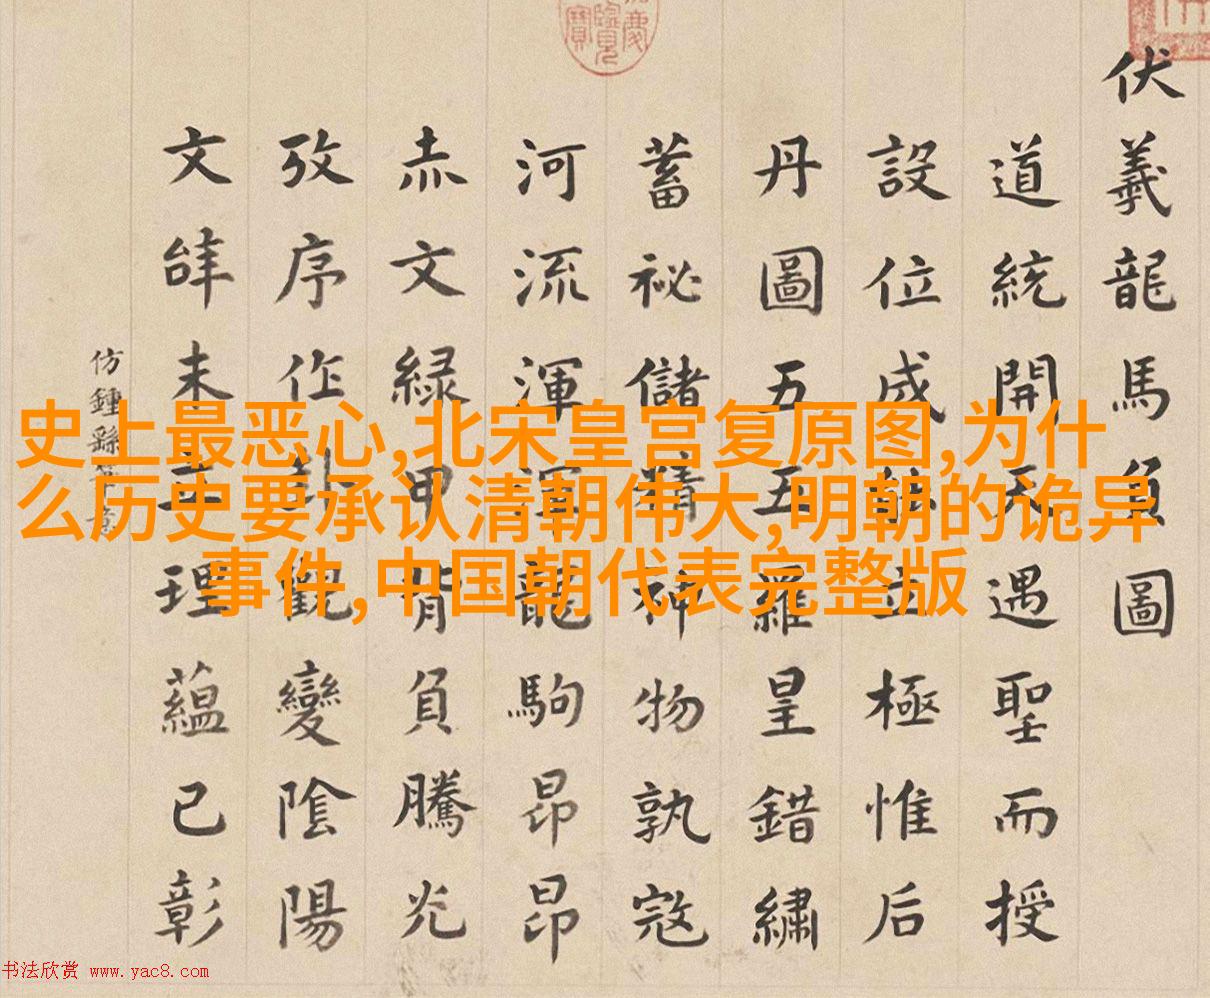 伏羲龍馬負圖
道統開天遇聖而授
設位成立極惟后
丹圖五五羅皇錯繡
蓄祕儲精神物孰寇
河流渾渾龍駒昂昂
赤文緑甲背負騰光
攷序作卦觀變陰陽
文辝未立理蘊已彰
仿鍾繇
史上最恶心,北宋皇宫复原图,为什
么历史要承认清朝伟大,明朝的诡异
事件,中国朝代表完整版
书法欣赏 www.yac8.com